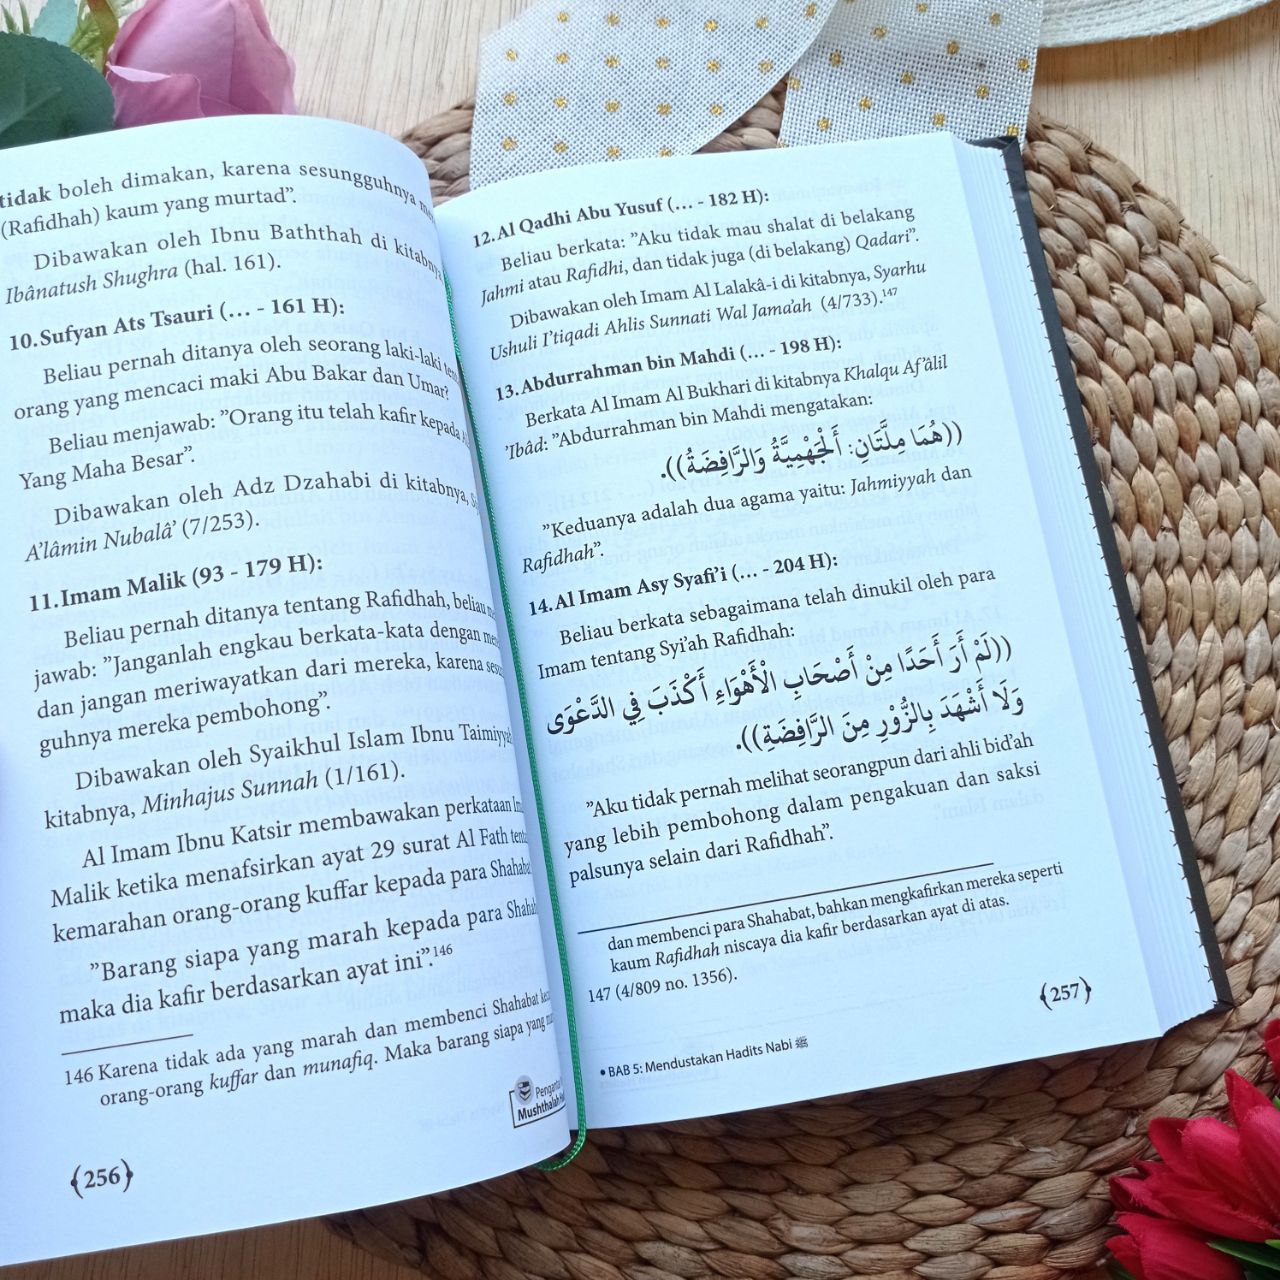 tidak boleh dimakan, karena sesungguhnya
(Rafidhah) kaum yang murtad”.
Dibawakan oleh Ibnu Baththah di kitabnya
Ibânatush Shughra (hal. 161).
10. Sufyan Ats Tsauri (... - 161 H):
Beliau pernah ditanya oleh seorang laki-laki
orang yang mencaci maki Abu Bakar dan Umar?
Beliau menjawab: ”Orang itu telah kafir kepada
Yang Maha Besar”.
Dibawakan oleh Adz Dzahabi di kitabnya,
A’lâmin Nubalâ’ (7/253).
11. Imam Malik (93 - 179 H):
Beliau pernah ditanya tentang Rafidhah, beliau
jawab: ”Janganlah engkau berkata-kata dengan
dan jangan meriwayatkan dari mereka, karena
guhnya mereka pembohong”.
Dibawakan oleh Syaikhul Islam Ibnu Taimiyyah
kitabnya, Minhajus Sunnah (1/161).
Al Imam Ibnu Katsir membawakan perkataan
Malik ketika menafsirkan ayat 29 surat Al Fath
kemarahan orang-orang kuffar kepada para
”Barang siapa yang marah kepada para
maka dia kafir berdasarkan ayat ini”.146
146 Karena tidak ada yang marah dan membenci Shahabat
orang-orang kuffar dan munafiq. Maka barang siapa yang
Mushthalah
(256)
12. Al Qadhi Abu Yusuf (... - 182 H):
Beliau berkata: ”Aku tidak mau shalat di belakang
Jahmi atau Rafidhi, dan tidak juga (di belakang) Qadari”.
Dibawakan oleh Imam Al Lalakâ-i di kitabnya, Syarhu
Ushuli I’tiqadi Ahlis Sunnati Wal Jama’ah (4/733).147
13. Abdurrahman bin Mahdi (... - 198 H):
Berkata Al Imam Al Bukhari di kitabnya Khalqu Af’âlil
’Ibâd: ”Abdurrahman bin Mahdi mengatakan:
((هُمَا مِلَّتَانِ: اَلْجَهْمِيَّةُ وَالرَّافِضَةُ)).
”Keduanya adalah dua agama yaitu: Jahmiyyah dan
Rafidhah”.
14. Al Imam Asy Syafi’i (... - 204 H):
Beliau berkata sebagaimana telah dinukil oleh para
Imam tentang Syi’ah Rafidhah:
((لَمْ أَرَ أَحَدًا مِنْ أَصْحَابِ الْأَهْوَاءِ أَكْذَبَ فِي الدَّعْوَى
وَلَا أَشْهَدَ بِالزُّوْرِ مِنَ الرَّافِضَةِ)).
”Aku tidak pernah melihat seorangpun dari ahli bid’ah
yang lebih pembohong dalam pengakuan dan saksi
palsunya selain dari Rafidhah”.
dan membenci para Shahabat, bahkan mengkafirkan mereka seperti
kaum Rafidhah niscaya dia kafir berdasarkan ayat di atas.
147 (4/809 no. 1356).
(257)
• BAB 5: Mendustakan Hadits Nabi ﷺ